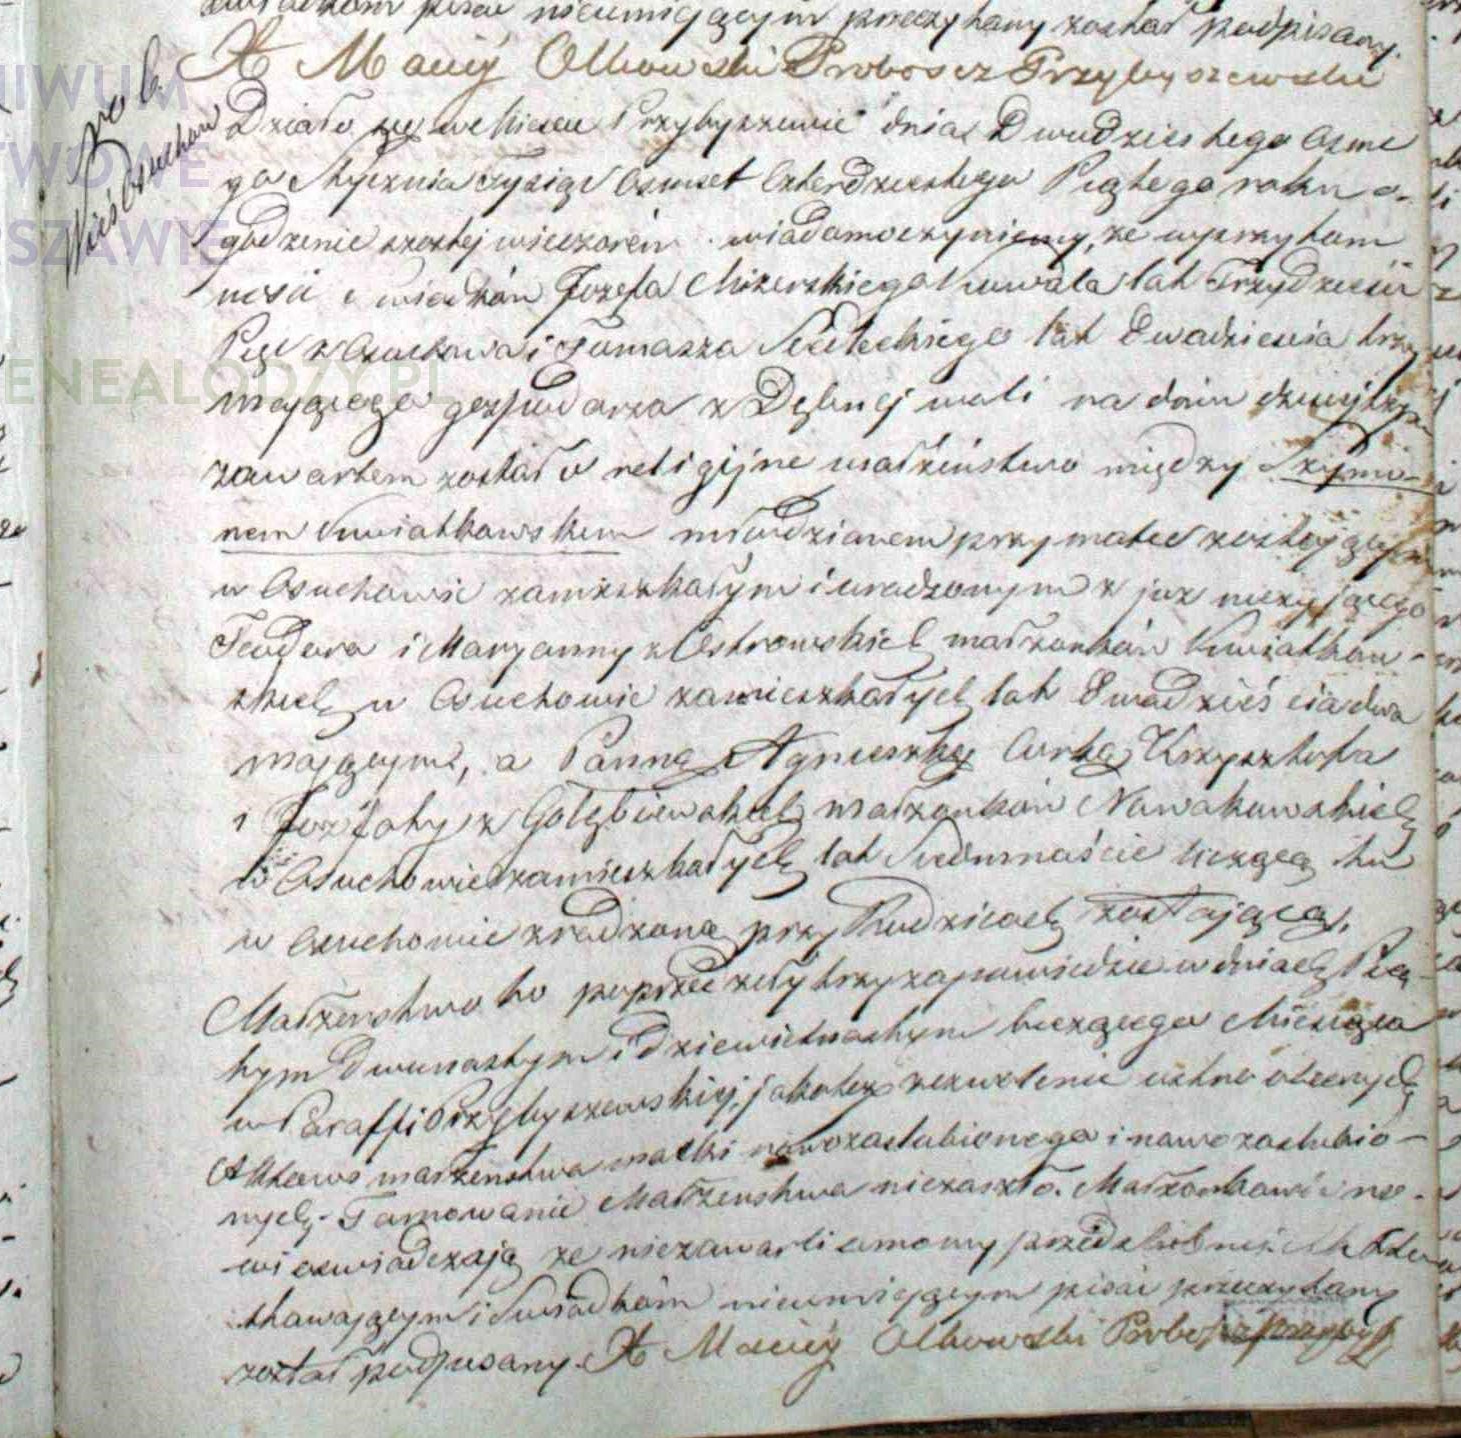 nieumiejącym przeczytany został podpisany.
X Maciej Olkowski Proboszcz Przybyszewski
Wieś Osuchow
Działo się we Mieście Przybyszewie dnia Dwudziestego Osme
go Stycznia Tysiąc Osmset Czterdziestego Piątego roku o
godzenie szostej wieczorem wiadomo czyniemy, ze w przytom
ności swiadków Jozefa Mizerskiego Kowala lat Trzydzieści
Pięc z Osuchowa i Tomasza lat Dwadziescia trzy
mającego gospodarza z Dębnej woli na dniu dzisiejszym
zawartem zostało religijne małżeństwo między Szymo-
nem Kwiatkowskem młodzianem przy matce zostającym
w Osuchowie zamieszkałym i urodzonym z juz niezyjącego
Teodora i Maryanny z Ostrowskich małzonków Kwiatkow-
skich w Osuchowie zamieszkałych lat Dwadzieścia dwa
mającym, a Panną Agnieszką Curką Krzysztofa
i Jozefaty z Gołębiewskich małzonków Nowakowskich
w Osuchowie zamieszkałych lat Siedmnaście liczącą tu
w Osuchowie zrodzoną przy Rodzicach zostającą.
Małzenstwo to poprzedzeły trzy zapowiedzie w dniach Pią
tym Dwunastym i dziewietnastym biezącego Miesiąca
w Paraffi Przybyszewskiej, jakotez zezwolenie ustne obecnych
Aktowi małzenstwa matki nowozaslubionego i nowozaslubio-
nych. Tamowanie Małzenstwa niezaszło. Małzonkowie no-
wi oswiadczają ze niezawarli umowy przedslubnej. Akt
stawającym i Swiadkom nieumiejącym pisać przeczytany
został podpisany. X Maciej Olkowski Proboszcz Przybysz
ENEALODZY.PL